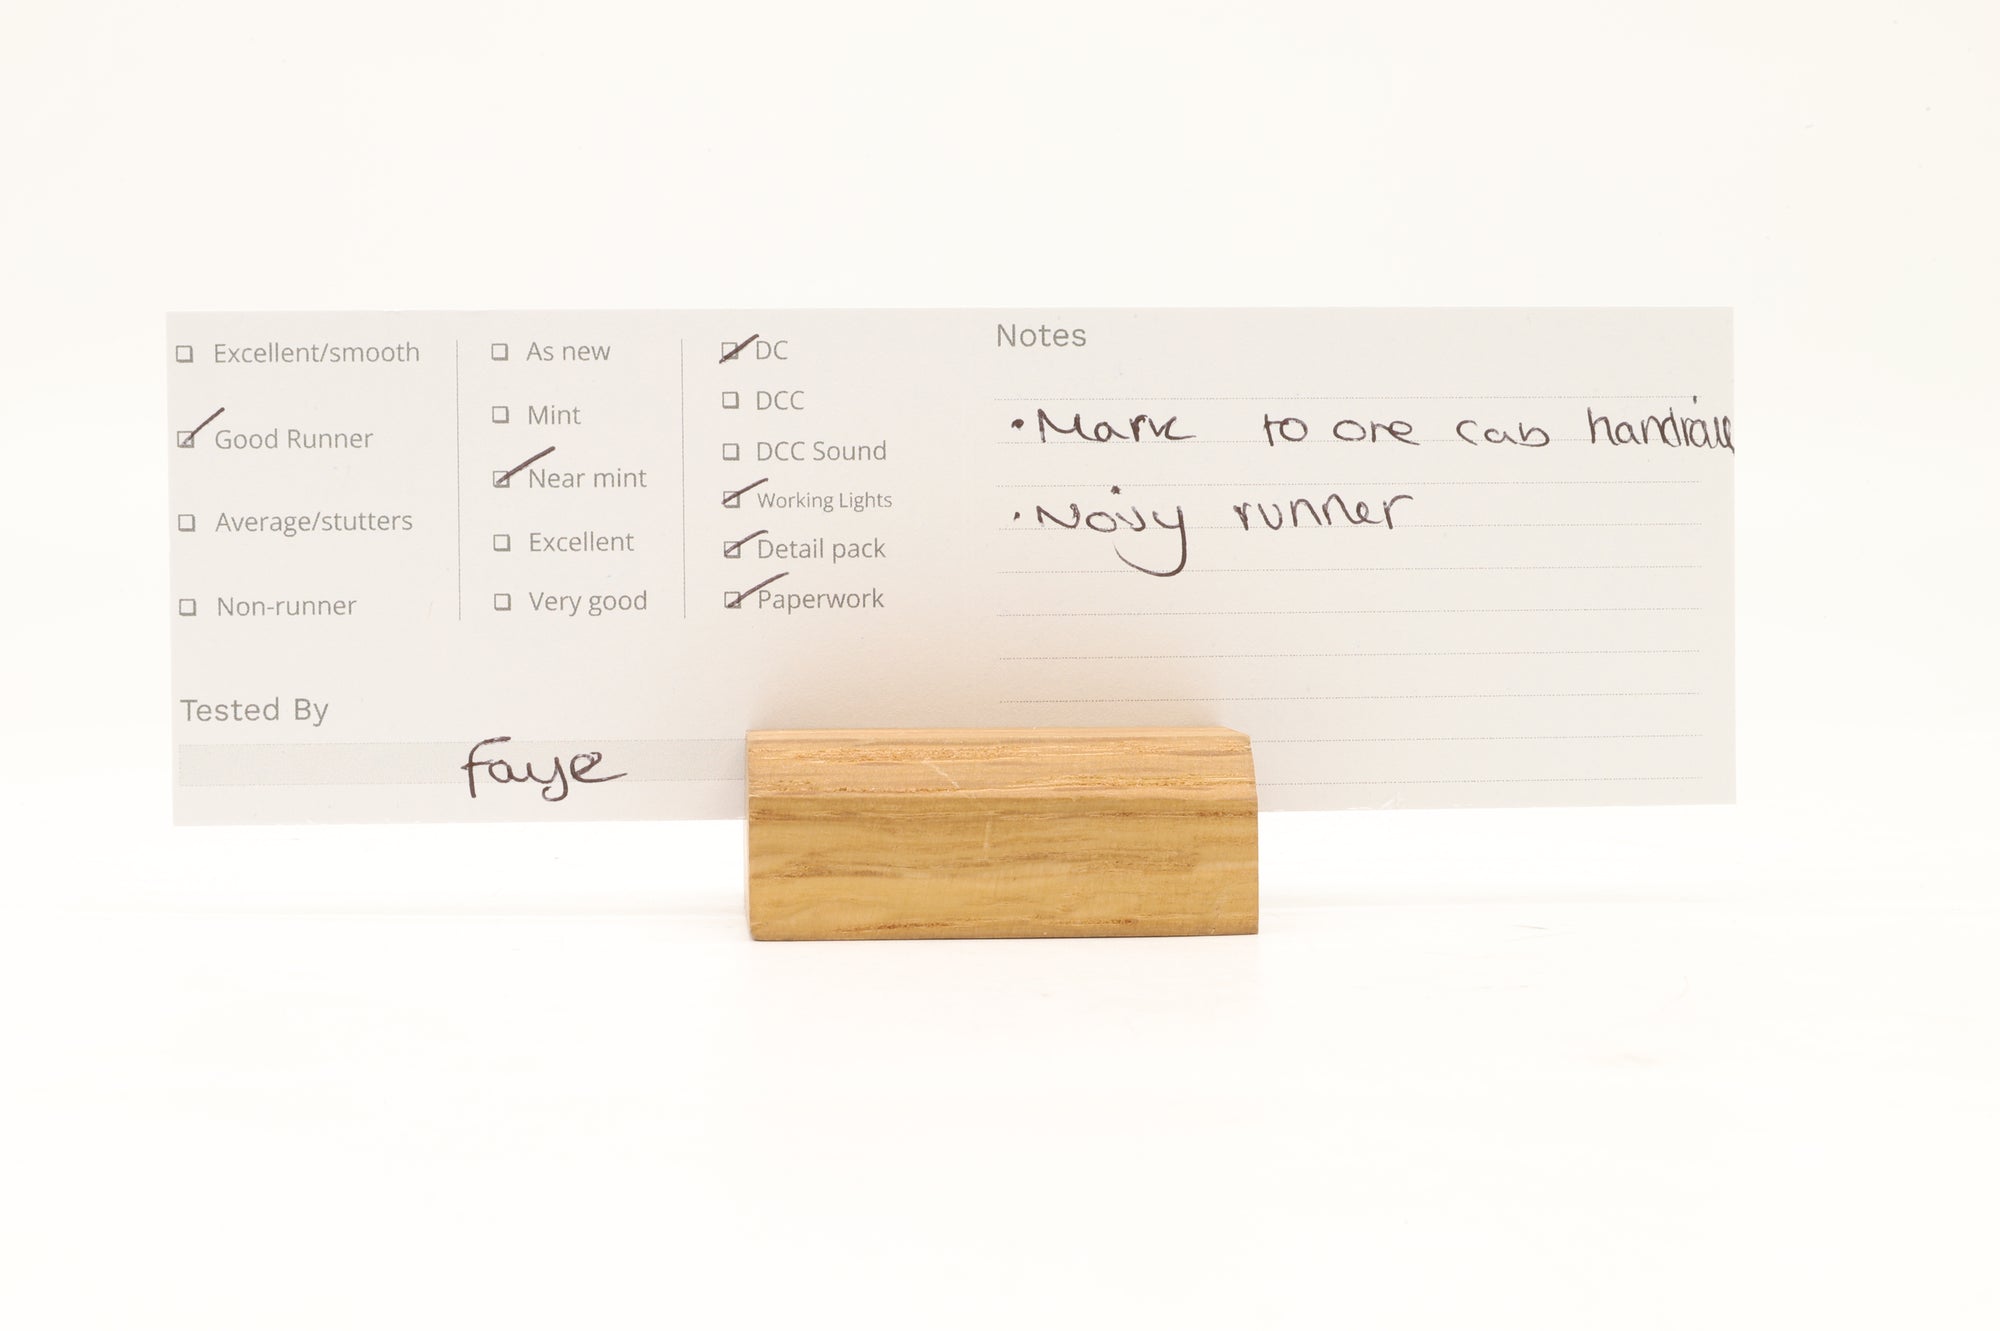 Excellent/smooth
Good Runner
Average/stutters
Non-runner
As new
Mint
Near mint
Excellent
Very good
DC
DCC
DCC Sound
Working Lights
Detail pack
Paperwork
Notes
• Mark to one cab handrail
• Noisy runner
Tested By
Faye